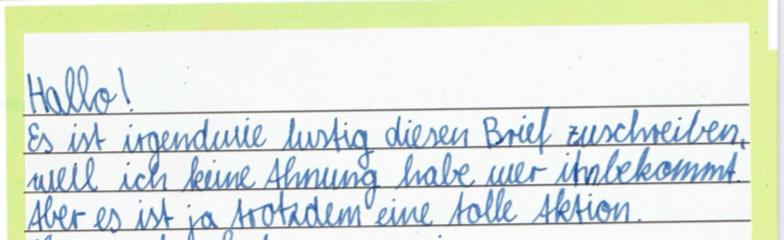 Hallo!
Es ist irgendwie lustig diesen Brief zuschreiben,
weil ich keine Ahnung habe wer ihnbekommt.
Aber es ist ja trotzdem eine tolle Aktion.